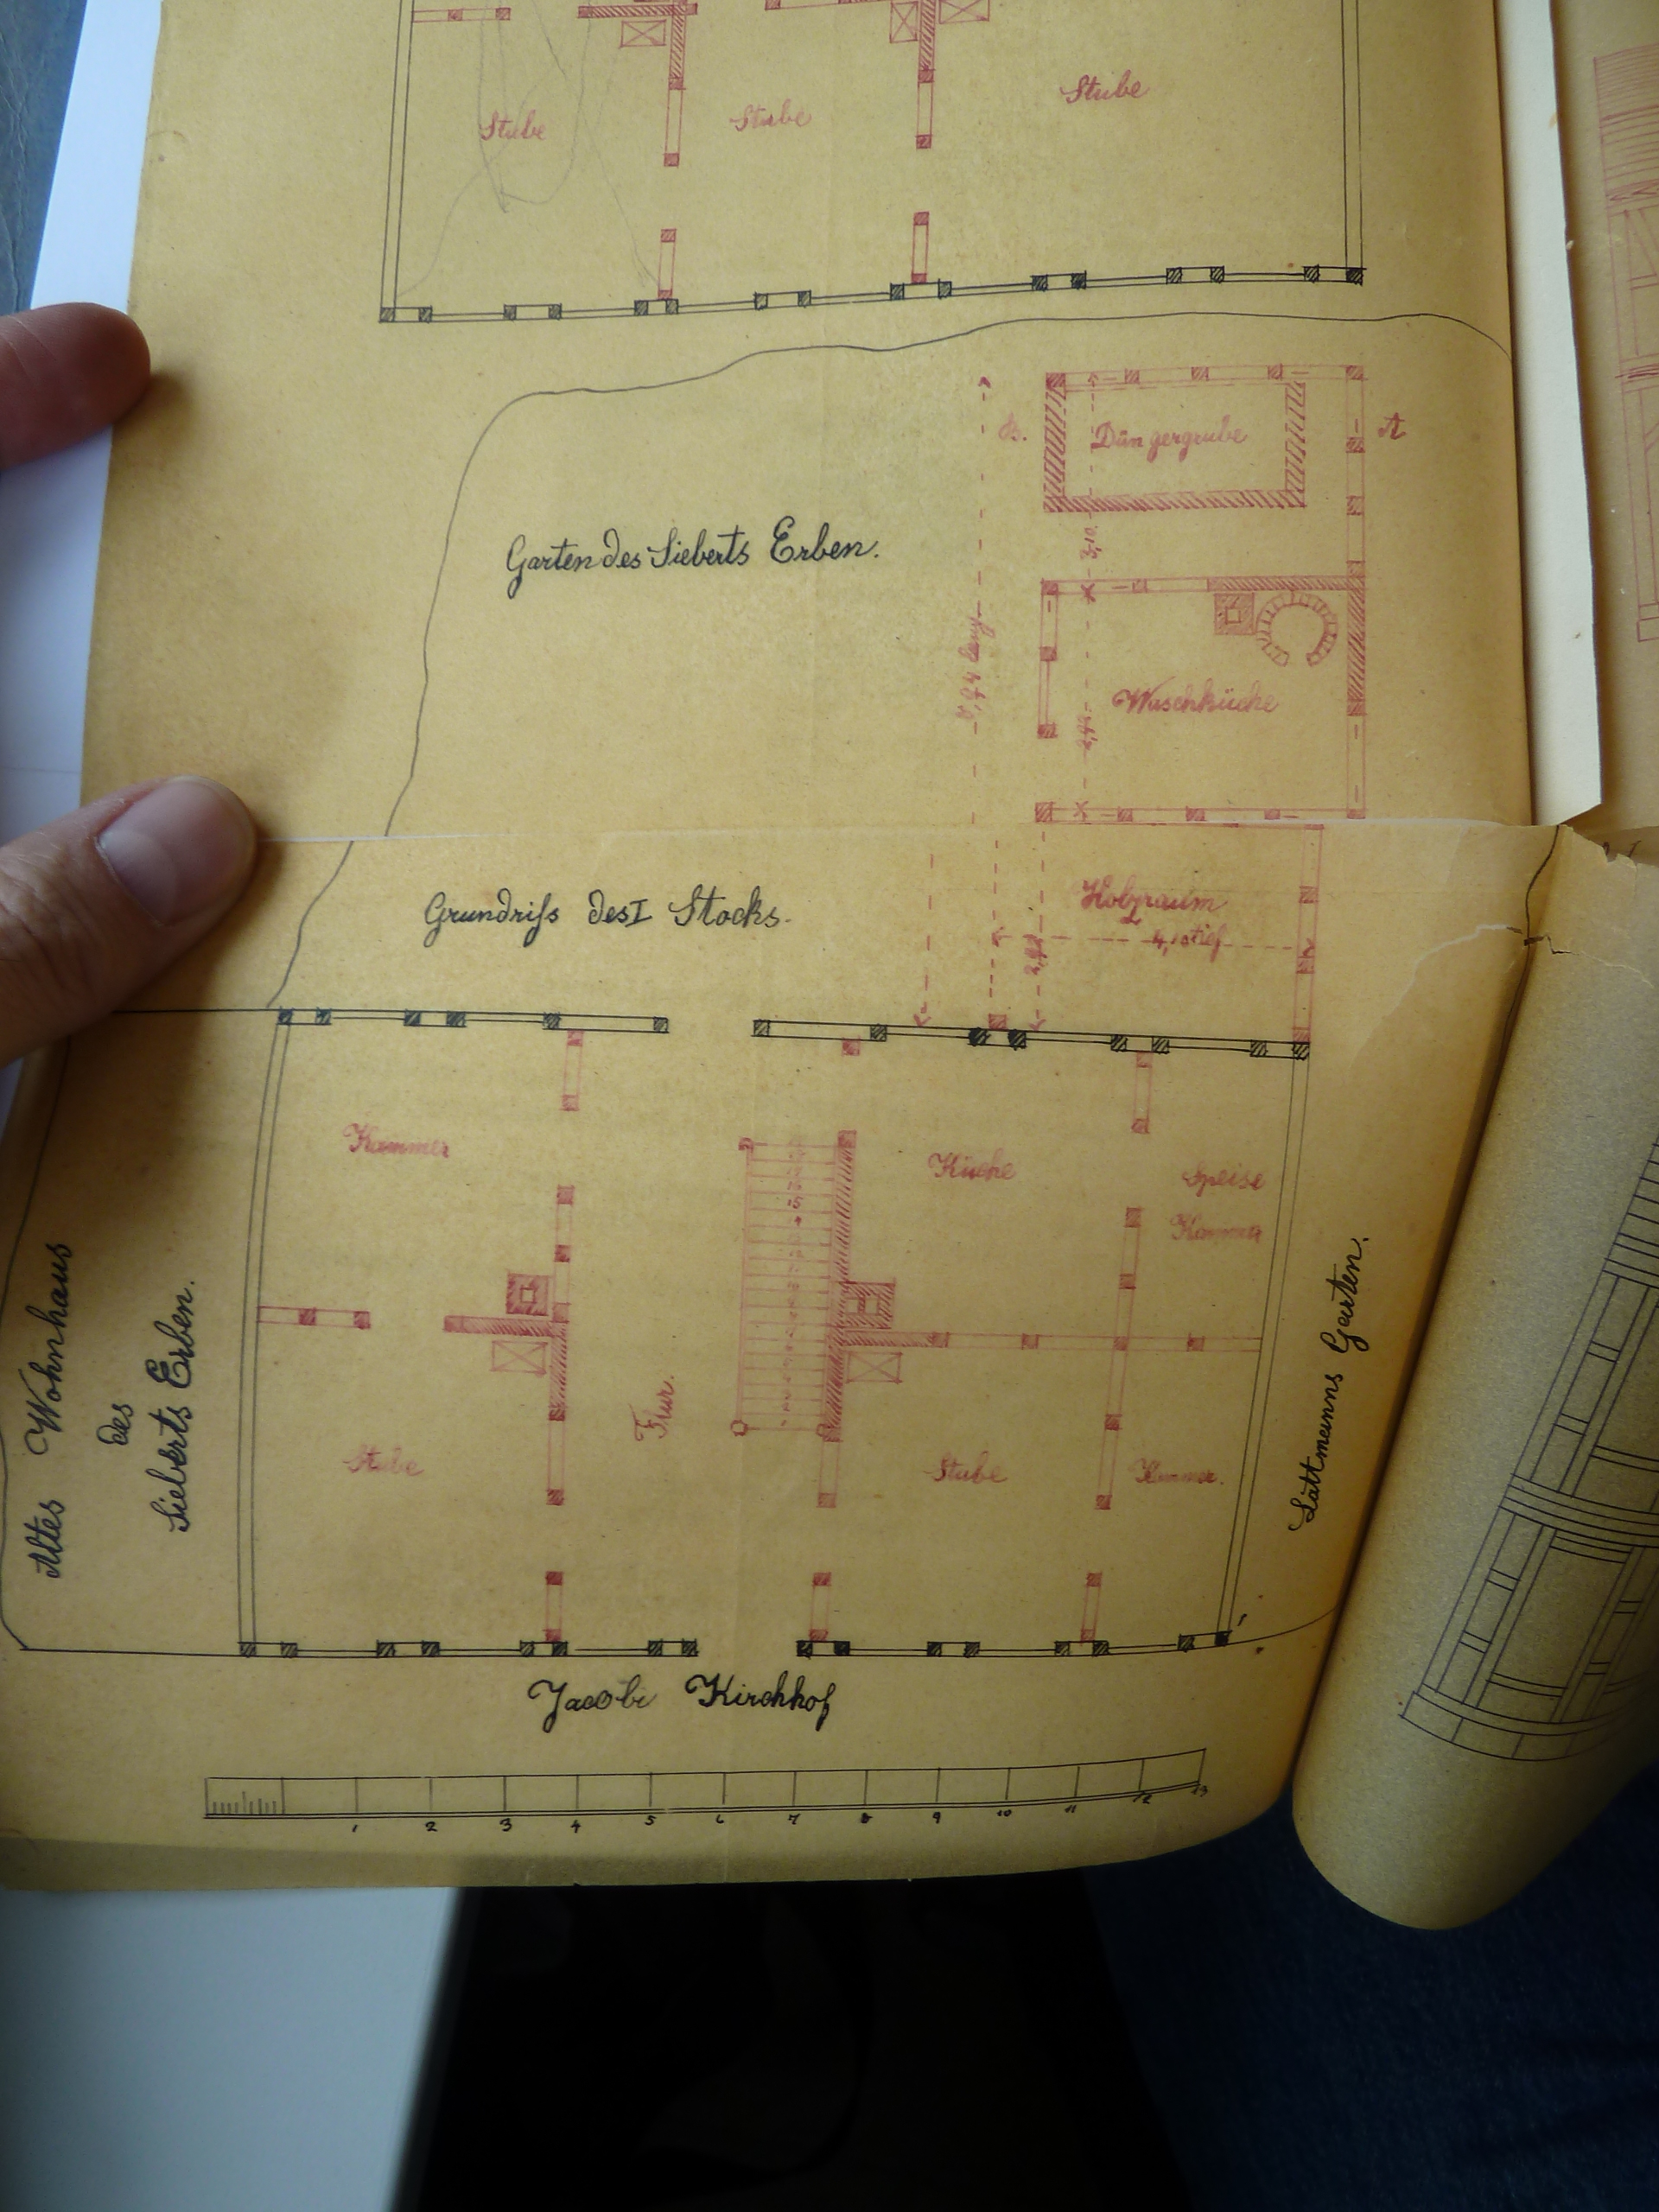 Stube
Stube
Stube
B.
Düngergrube
A
Garten des Sieberts Erben.
3,10.
Waschküche
Grundriſs des I Stocks.
Holzraum
Kammer
Küche
Speise
Kammer
Altes Wohnhaus
des
Sieberts Erben.
Stube
Flur.
Stube
Kammer.
Garten.
Jacobi Kirchhof
1 2 3 4 5 6 7 8 9 10 11 12 13